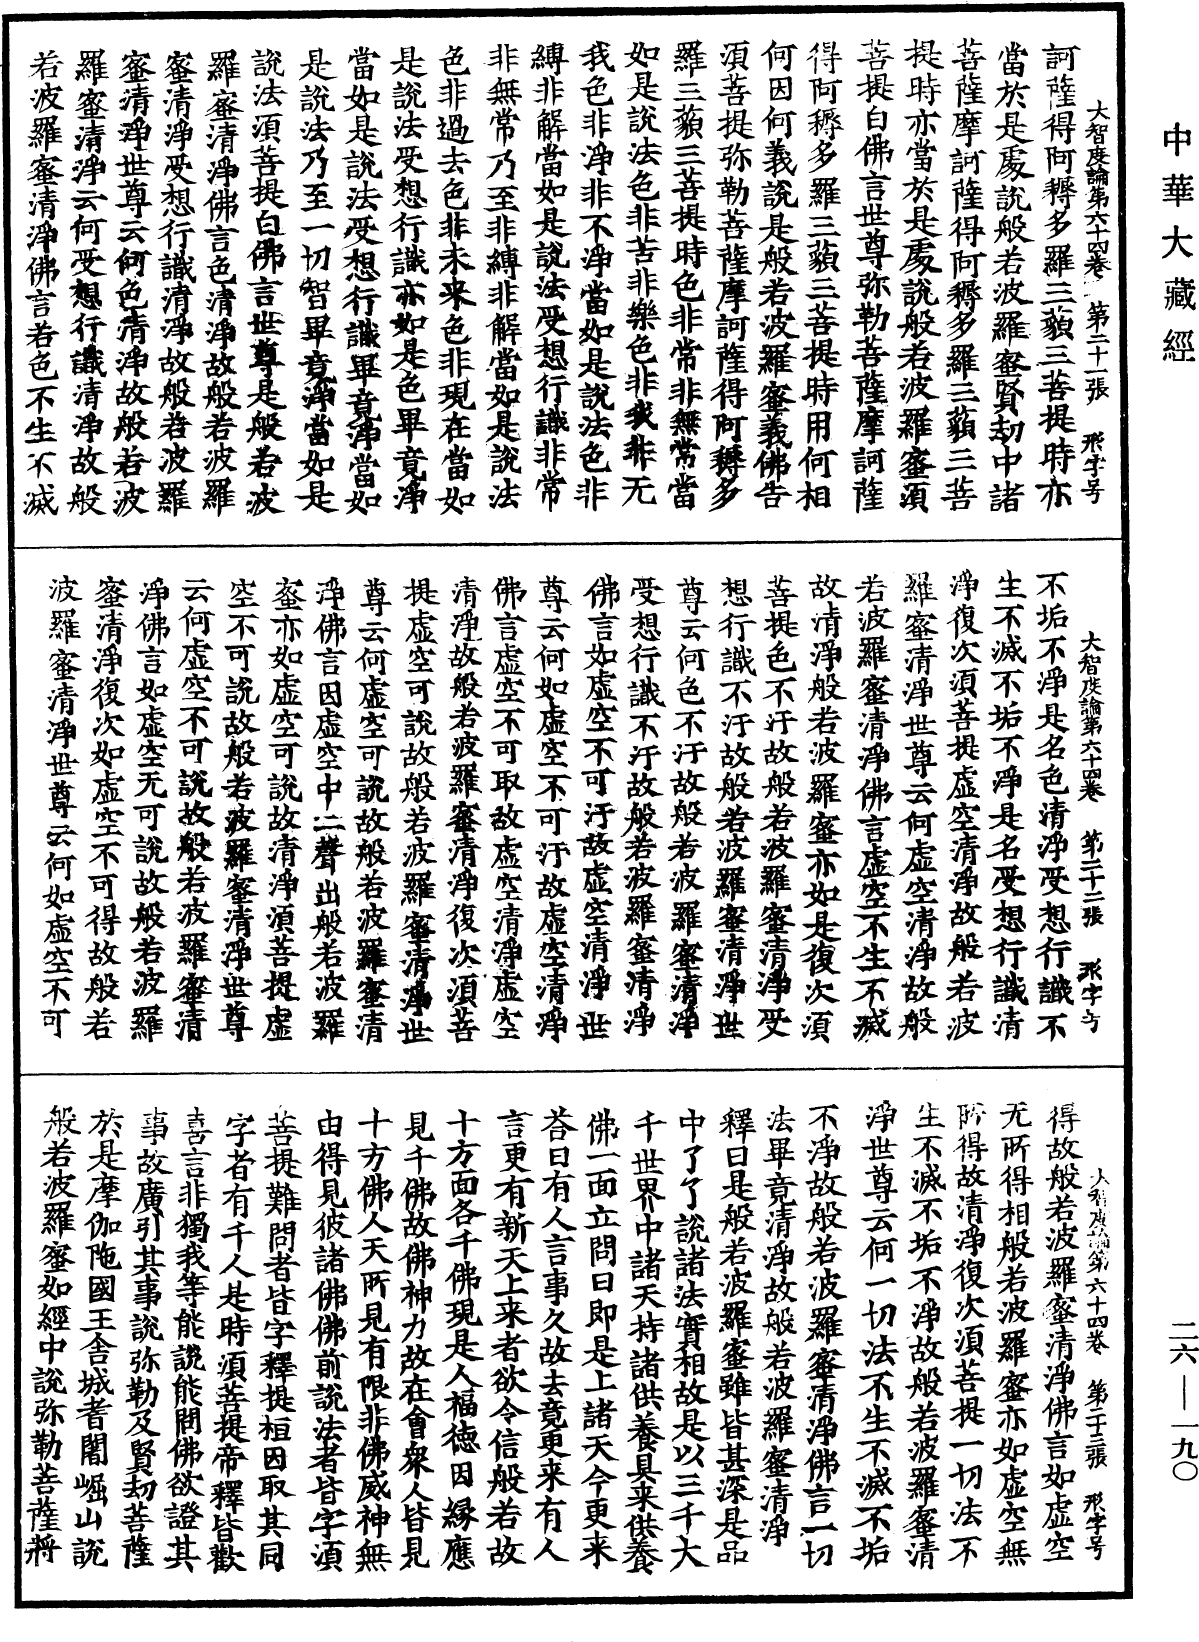 中華大藏經
大智度論第六十四卷 第二十一張 形字号
訶薩得阿耨多羅三藐三菩提時亦
當於是處說般若波羅蜜賢劫中諸
菩薩摩訶薩得阿耨多羅三藐三菩
提時亦當於是處說般若波羅蜜須
菩提白佛言世尊弥勒菩薩摩訶薩
得阿耨多羅三藐三菩提時用何相
何因何義說是般若波羅蜜義佛告
須菩提弥勒菩薩摩訶薩得阿耨多
羅三藐三菩提時色非常非無常當
如是說法色非苦非樂色非我非无
我色非淨非不淨當如是說法色非
縛非解當如是說法受想行識非常
非無常乃至非縛非解當如是說法
色非過去色非未来色非現在當如
是說法受想行識亦如是色畢竟淨
當如是說法受想行識畢竟淨當如
是說法乃至一切智畢竟淨當如是
說法須菩提白佛言世尊是般若波
羅蜜清淨佛言色清淨故般若波羅
蜜清淨受想行識清淨故般若波羅
蜜清淨世尊云何色清淨故般若波
羅蜜清淨云何受想行識清淨故般
若波羅蜜清淨佛言若色不生不滅
大智度論第六十四卷 第二十二張 形字号
不垢不淨是名色清淨受想行識不
生不滅不垢不淨是名受想行識清
淨復次須菩提虛空清淨故般若波
羅蜜清淨世尊云何虛空清淨故般
若波羅蜜清淨佛言虛空不生不滅
故清淨般若波羅蜜亦如是復次須
菩提色不汙故般若波羅蜜清淨受
想行識不汙故般若波羅蜜清淨世
尊云何色不汙故般若波羅蜜清淨
受想行識不汙故般若波羅蜜清淨
佛言如虛空不可汙故虛空清淨世
尊云何如虛空不可汙故虛空清淨
佛言虛空不可取故虛空清淨虛空
清淨故般若波羅蜜清淨復次須菩
提虛空可說故般若波羅蜜清淨世
尊云何虛空可說故般若波羅蜜清
淨佛言因虛空中二聲出般若波羅
蜜亦如虛空可說故清淨須菩提虛
空不可說故般若波羅蜜清淨世尊
云何虛空不可說故般若波羅蜜清
淨佛言如虛空无可說故般若波羅
蜜清淨復次如虛空不可得故般若
波羅蜜清淨世尊云何如虛空不可
大智度論第六十四卷 第二十三張 形字号
得故般若波羅蜜清淨佛言如虛空
无所得相般若波羅蜜亦如虛空無
所得故清淨復次須菩提一切法不
生不滅不垢不淨故般若波羅蜜清
淨世尊云何一切法不生不滅不垢
不淨故般若波羅蜜清淨佛言一切
法畢竟清淨故般若波羅蜜清淨
釋曰是般若波羅蜜雖皆甚深是品
中了了說諸法實相故是以三千大
千世界中諸天持諸供養具来供養
佛一面立問曰即是上諸天今更来
荅曰有人言事久故去竟更来有人
言更有新天上来者欲令信般若故
十方面各千佛現是人福德因緣應
見千佛故佛神力故在會衆人皆見
十方佛人天所見有限非佛威神無
由得見彼諸佛佛前說法者皆字須
菩提難問者皆字釋提桓因取其同
字者有千人是時須菩提帝釋皆歡
喜言非獨我等能說能問佛欲證其
事故廣引其事說弥勒及賢劫菩薩
於是摩伽陁國王舍城耆闍崛山說
般若波羅蜜如經中說弥勒菩薩將
二六——一九〇